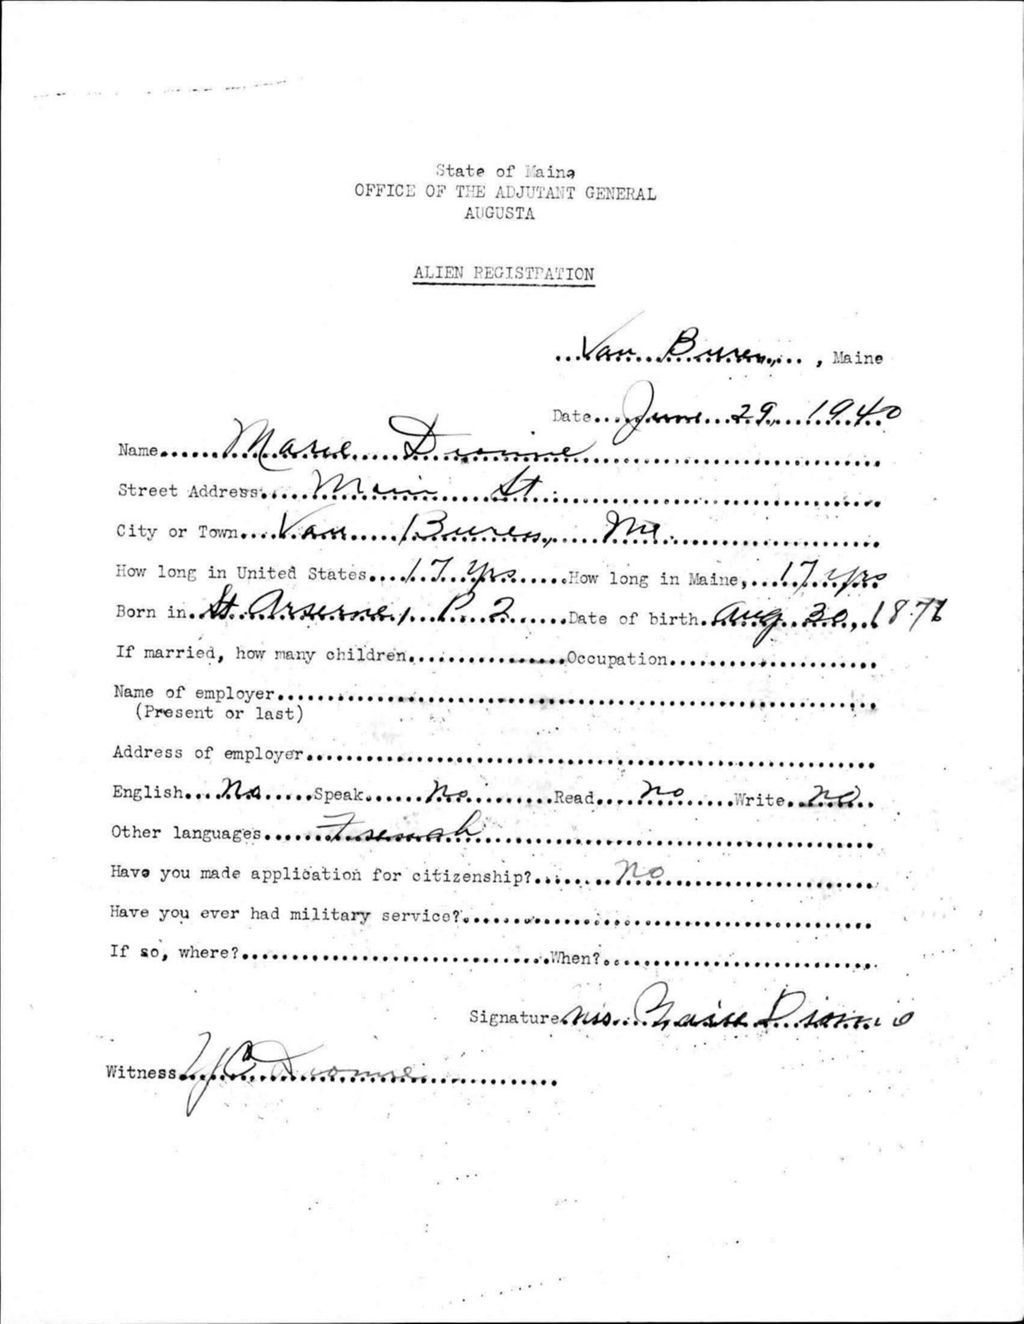 State of Maine
OFFICE OF THE ADJUTANT GENERAL
AUGUSTA
ALIEN REGISTRATION
Van Buren, , Maine
Date June 29, 1940
Name Marie Dionne
Street Address Main St.
City or Town Van Buren, Me.
How long in United States 17 yrs How long in Maine, 17 yrs
Born in St. Arsene, P. Q Date of birth Aug 30, 18
If married, how many children Occupation
Name of employer
(Present or last)
Address of employer
English No Speak No Read No Write No
Other languages French
Have you made application for citizenship? No
Have you ever had military service?
If so, where? When?
Signature Mrs. Dionne
Witness Y C Dionne